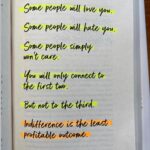 Some people will love you.
Some people will hate you.
Some people simply
won't care.
You will only connect to
the first two.
But not to the third.
Indifference is the least
profitable outcome.